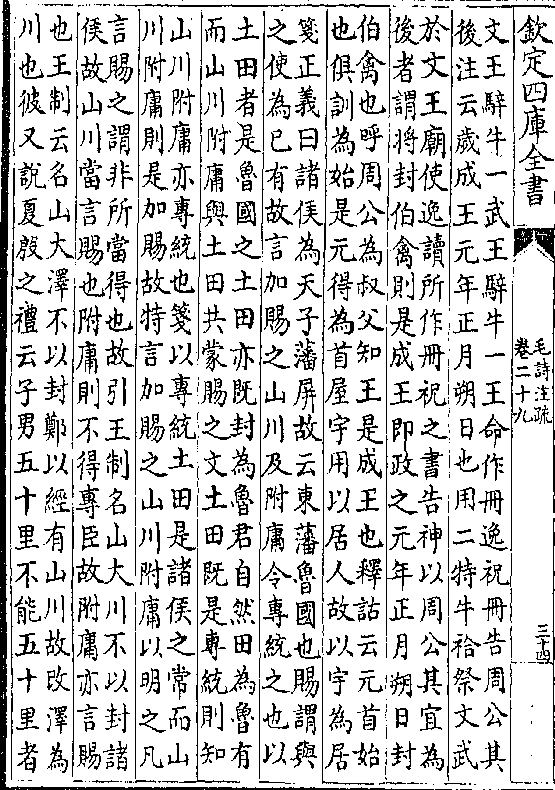 欽定四庫全書
毛詩注疏
卷二十九
三十四
文王騂牛一武王騂牛一王命作冊逸祝冊告周公其
後注云歲成王元年正月朔日也用二特牛祫祭文武
於文王廟使逸讀所作冊祝之書告神以周公其宜為
後者謂將封伯禽則是成王即政之元年正月朔日封
伯禽也呼周公為叔父知王是成王也釋詁云元首始
也俱訓為始是元得為首屋宇用以居人故以宇為居
箋正義曰諸侯為天子藩屏故云東藩魯國也賜謂與
之使為已有故言加賜之山川及附庸令專統之也以
土田者是魯國之土田亦既封為魯君自然田為魯有
而山川附庸與土田共蒙賜之文土田既是專統則知
山川附庸亦專統也箋以專統土田是諸侯之常而山
川附庸則是加賜故特言加賜之山川附庸以明之凡
言賜之謂非所當得也故引王制名山大川不以封諸
侯故山川當言賜也附庸則不得專臣故附庸亦言賜
也王制云名山大澤不以封鄭以經有山川故改澤為
川也彼又說夏殷之禮云子男五十里不能五十里者